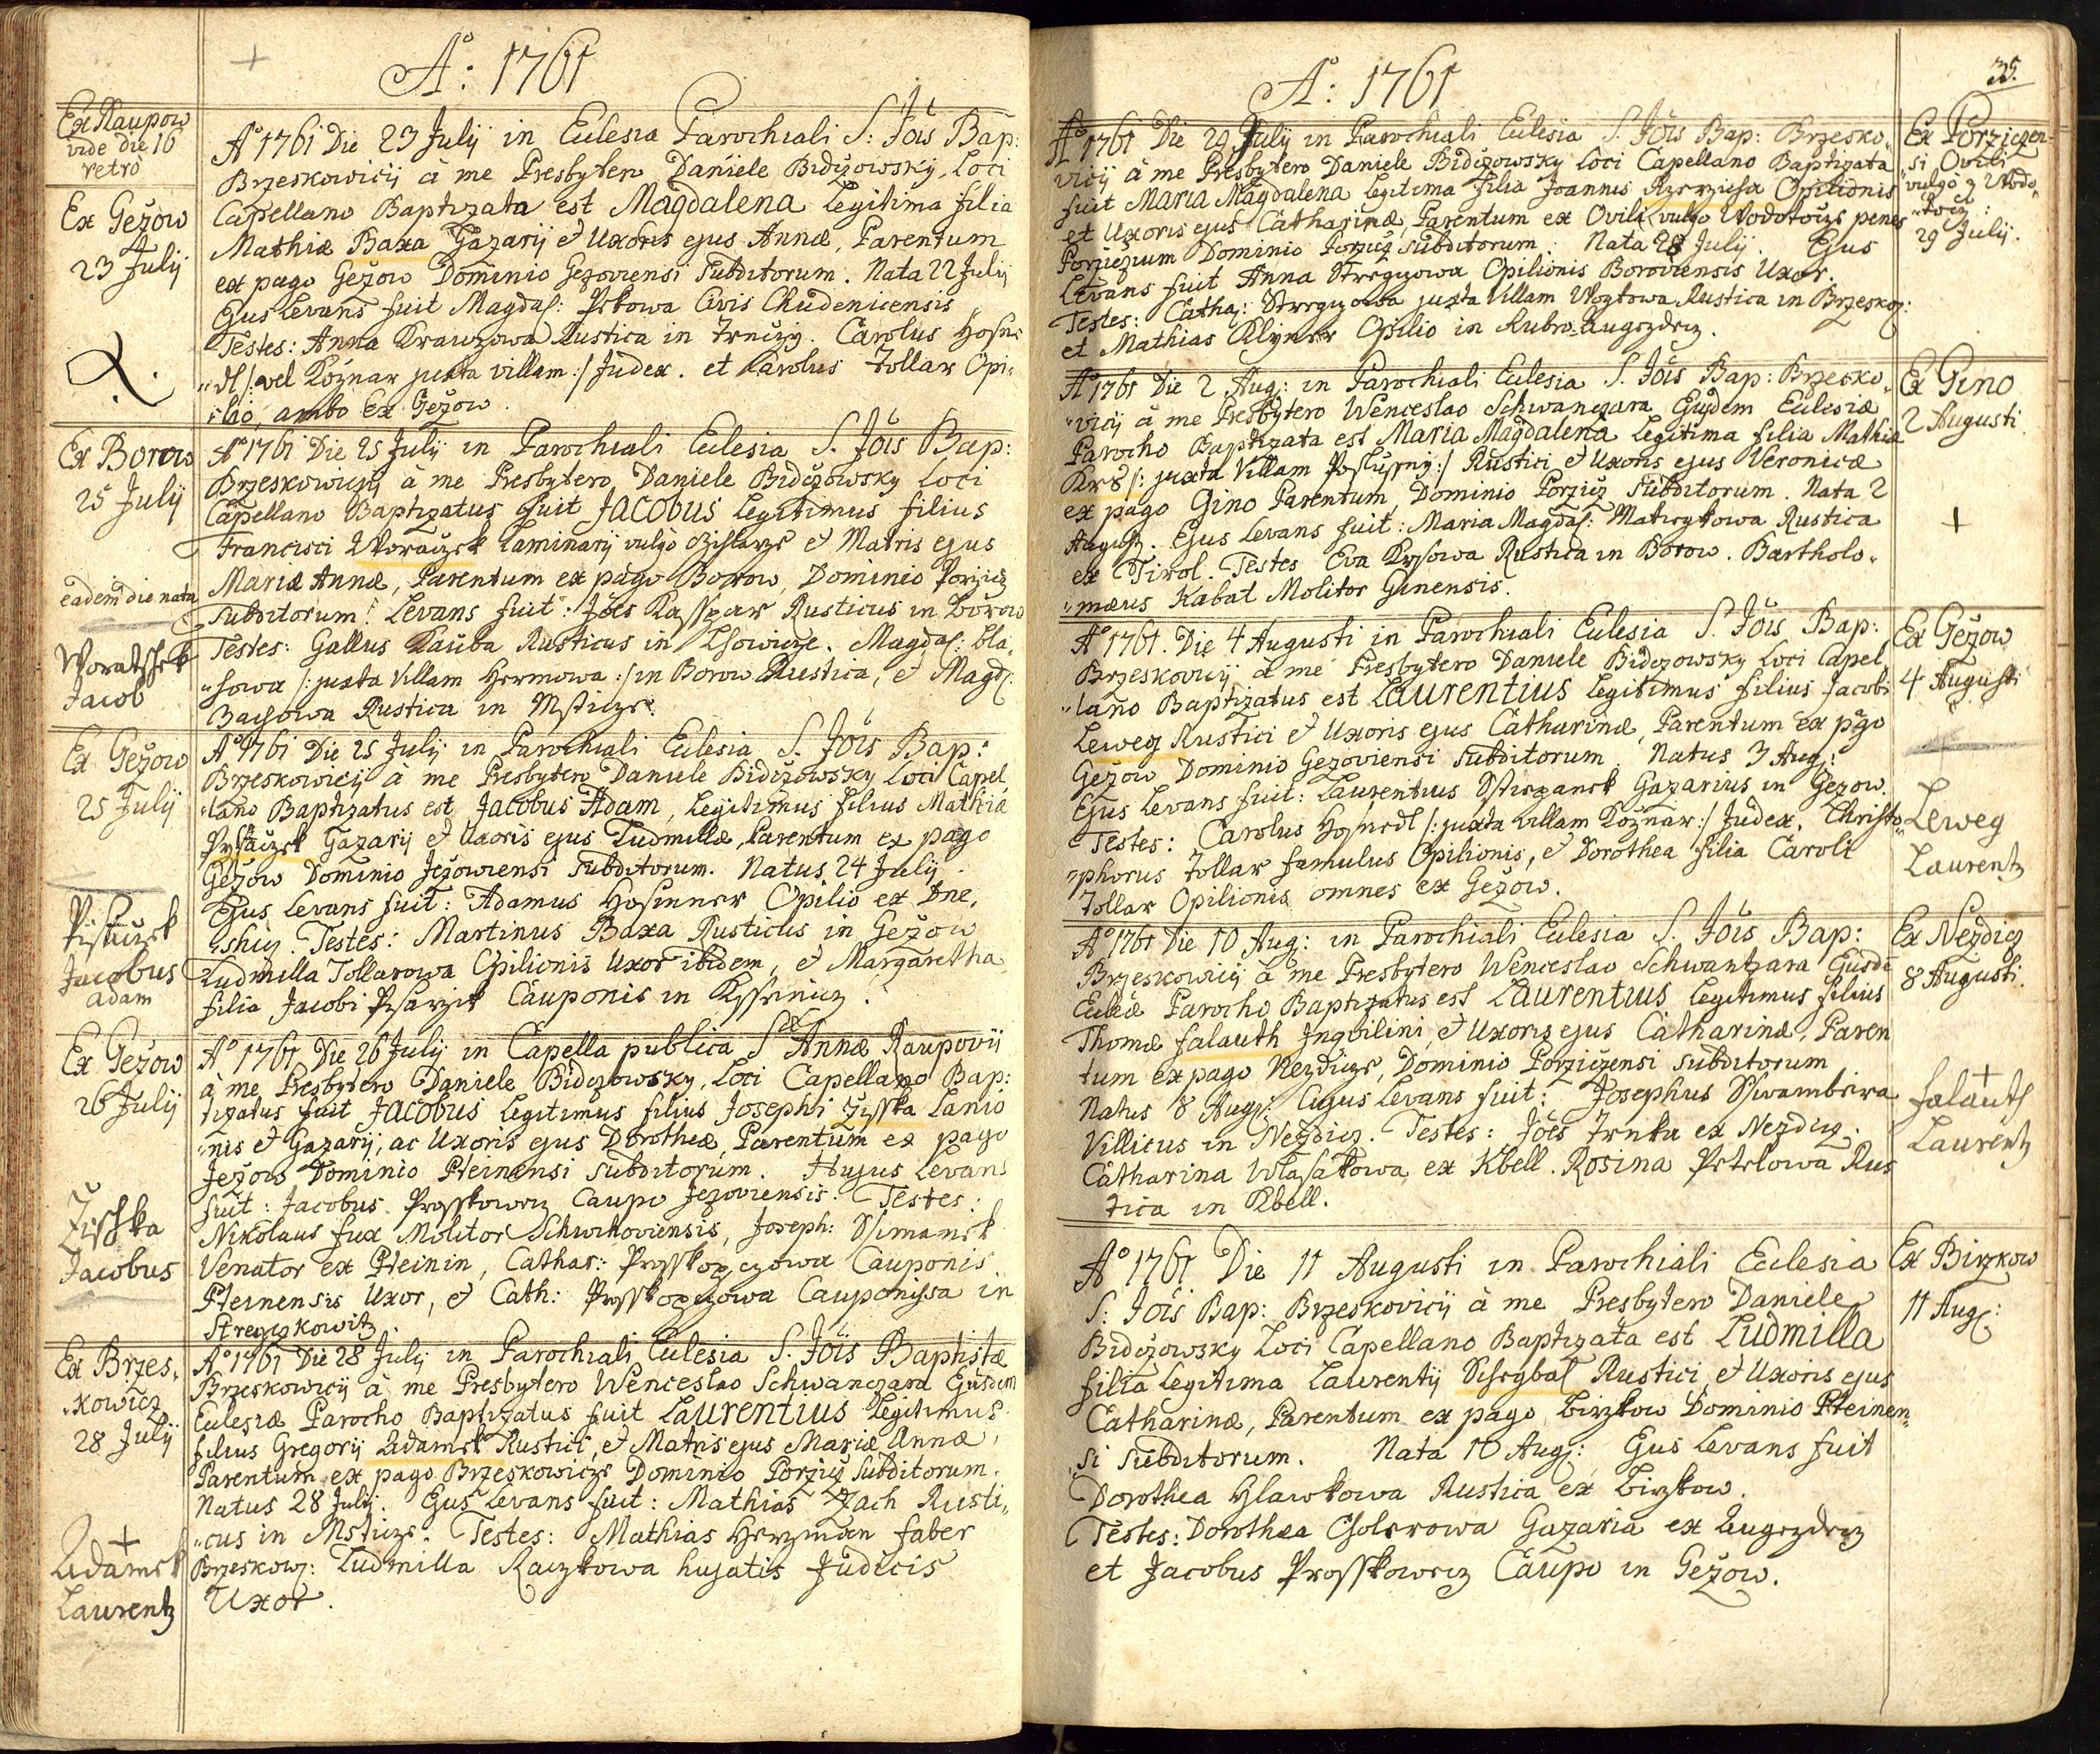 Aº: 1761
Ex Raupow
vide die 16
retrò
Ex Gežow
23 Julij
Aº 1761 Die 23 Julij in Eulesia Parochiali S: Jöis Bap:
Brzeskowicij à me Presbytero Daniele Bidčzowsky, Loci
Capellano Baptizata est Magdalena Legitima filia
Mathiæ Baxa Gazarij & Uxoris ejus Annæ, Parentum
ex pago Gežow Dominio Gezoviensi Subditorum. Nata 22 Julij
Ejus Levans fuit Magdal: Civis Chudenicensis
Testes: Anna Krawzowa Rustica in Trnčzij. Carolus Hofne
"dl /: vel Kožnar juxta villam :/ Judex. et Karolus Tollar Opi"
"lio, ambo Ex Gežow.
Ex Borow
25 Julij
eadem die nata
Woratschek
Jacob
Aº 1761 Die 25 Julij in Parochiali Eclesia S. Jöis Bap:
Brzeskowicij à me Presbytero Daniele Bidčzowsky Loci
Capellano Baptizatus fuit JACOBUS Legitimus filius
Francisci Woraczek Laminarij vulgo & Matris ejus
Mariæ Annæ, Parentum ex pago Borow, Dominio Porziez
Subditorum. Levans fuit: Jöes Kasspar Rusticus in Borow
Testes: Gallus Kauba Rusticus in Lhowicze. Magdal: bla"
"howa /: juxta Villam Hermowa :/ in Borow Rustica, & Magdl:
Rustica in Msticze.
Ex Gežow
25 Julij
Pisaczek
Jacobus
adam
Aº 1761 Die 25 Julij in Parochiali Eclesia S. Jöis Bap:
Brzeskowicij à me Presbytero Daniele Bidčzowsky Loci Capel
"lano Baptizatus est Jacobus Adam, Legitimus filius Mathiæ
Pysaczek Gazarij & Uxoris ejus Ludmillæ, Parentum ex pago
Gežow Dominio Ježowiensi Subditorum. Natus 24 Julij.
Ejus Levans fuit: Adamus Hosinner Opilio ex Dne"
"shiz. Testes: Martinus Baxa Rusticus in Gežow
Ludmilla Tollarowa Opilionis Uxor ibidem, & Margaretha
filia Jacobi Pisarzik Cauponis in
Ex Gežow
26 Julij
Zischka
Jacobus
Aº 1761 Die 26 Julij in Capella publica Sæ Annæ Raupovij
à me Presbytero Daniele Bidczowsky, Loci Capellano Bap:
tizatus fuit JACOBUS Legitimus filius Josephi Zisska Lanio
"nis & Gazarij, ac Uxoris ejus Dorotheæ, Parentum ex pago
Ježow Dominio Pteinensi Subditorum. Hujus Levans
fuit: Jacobus Prosskowecz Caupo Jezoviensis. Testes:
Nikolaus fux Molitor Schwihoviensis, Joseph: Ssimanek
Venator ex Pteinin, Cathar: Prosskopczowa Cauponis
Pteinensis Uxor, & Cath: Prosskopczowa Cauponissa in
Stregczkowitz.
Ex Brzes"
"kowicz
28 Julij
Adamek
Laurentz
Aº 1761 Die 28 Julij in Parochiali Eulesia S. Jöis Baptistæ
Brzeskowicij à me Presbytero Wenceslao Schwanczara Ejusdem
Eulesiæ Parocho Baptizatus fuit LAURENTIUS Legitimus
filius Gregorij Adamek Rustici, & Matris ejus Mariæ Annæ,
Parentum ex pago Brzeskowicze Dominio Porziez Subditorum.
Natus 28 Julij. Ejus Levans fuit: Mathias Zach Rusti"
"cus in Msticze. Testes: Mathias Herzman faber
Brzeskow: Ludmilla Raczkowa hujatis Judicis
Uxor.
Aº: 1761
35.
Aº 1761 Die 29 Julij in Parochiali Eulesia S. Jöis Bap: Brzesko"
vicij à me Presbytero Daniele Bidčzowsky Loci Capellano Baptizata
fuit Maria Magdalena legitima filia Joannis Opilionis
et Uxoris ejus Catharinæ, Parentum ex Ovili vulgo Wodotocze penes
Porziczium Dominio Porziez subditorum. Nata 28 Julij. Ejus
Levans fuit Anna Opilionis Boroviensis Uxor.
Testes: Catha: juxta Villam Wogtowa Rustica in Brzeskoj:
et Mathias Klyner Opilio in Rubro-Augezdecz.
Ex Porziczen
si Ovili
vulgò z Wodo"
"tocz:
29 Julij.
Aº 1761 Die 2 Aug: in Parochiali Eulesia S. Jöis Bap: Brzesko"
"vicij à me Presbytero Wenceslao Schwanczara Ejusdem Eulesiæ
Parocho Baptizata est Maria Magdalena Legitima filia Mathiæ
/: juxta Villam Poslussny :/ Rustici & Uxoris ejus Veronicæ
ex pago Gino Parentum, Dominio Porziez Subditorum. Nata 2
August. Ejus Levans fuit: Maria Magdal: Rustica
ex Tirol. Testes Eva Rustica in Borow. Bartholo"
"mæus Kabat Molitor Ginensis.
Ex Gino
2 Augusti
Aº 1761. Die 4 Augusti in Parochiali Eulesia S. Jöis Bap:
Brzeskovicij à me Presbytero Daniele Bidczowsky Loci Capel
"lano Baptizatus est LAURENTIUS Legitimus filius Jacobi
Leweg Rustici & Uxoris ejus Catharinæ, Parentum ex pago
Gežow Dominio Gezoviensi Subditorum. Natus 3 Aug:
Ejus Levans fuit: Laurentius Gazarius in Gezow.
Testes: Carolus Hofnedl /: juxta villam Kožnar :/ Judex. Christo"
"phorus Tollar famulus Opilionis, & Dorothea filia Caroli
Tollar Opilionis omnes ex Gežow.
Ex Gežow
4 Augusti
Leweg
Laurentz
Aº 1761 Die 10 Aug: in Parochiali Eulesia S. Jöis Bap:
Brzeskowicij à me Presbytero Wenceslao Schwantzara Ejusdē
Eulæ Parocho Baptizatus est LAURENTIUS Legitimus filius
Thomæ falauth Inqvilini, & Uxoris ejus Catharinæ, Paren
tum ex pago Nezdicze, Dominio Porzičzensi subditorum
Natus 8 Aug: Cujus Levans fuit: Josephus Schwambera
Villicus in Nezdicz. Testes: Jöes Trnka ex Nezdicz.
Catharina Wlasakowa ex Kbell. Rosina Petrlowa Rus
tica in Kbell.
Ex Nezdicz
8 Augusti.
falauth
Laurentz
Aº 1761 Die 11 Augusti in Parochiali Eulesia
S: Jöis Bap: Brzeskovicij à me Presbytero Daniele
Bidčzowsky Loci Capellano Baptizata est LUDMILLA
filia legitima Laurentij Schegbal Rustici & Uxoris ejus
Catharinæ, Parentum ex pago Birzkow Dominio Pteinen"
"si Subditorum. Nata 10 Aug: Ejus Levans fuit
Dorothea Hlawkowa Rustica ex Birzkow.
Testes: Dorothea Gazaria ex Augezdecz
et Jacobus Prosskowecz Caupo in Gežow.
Ex Birzkow
11 Aug: